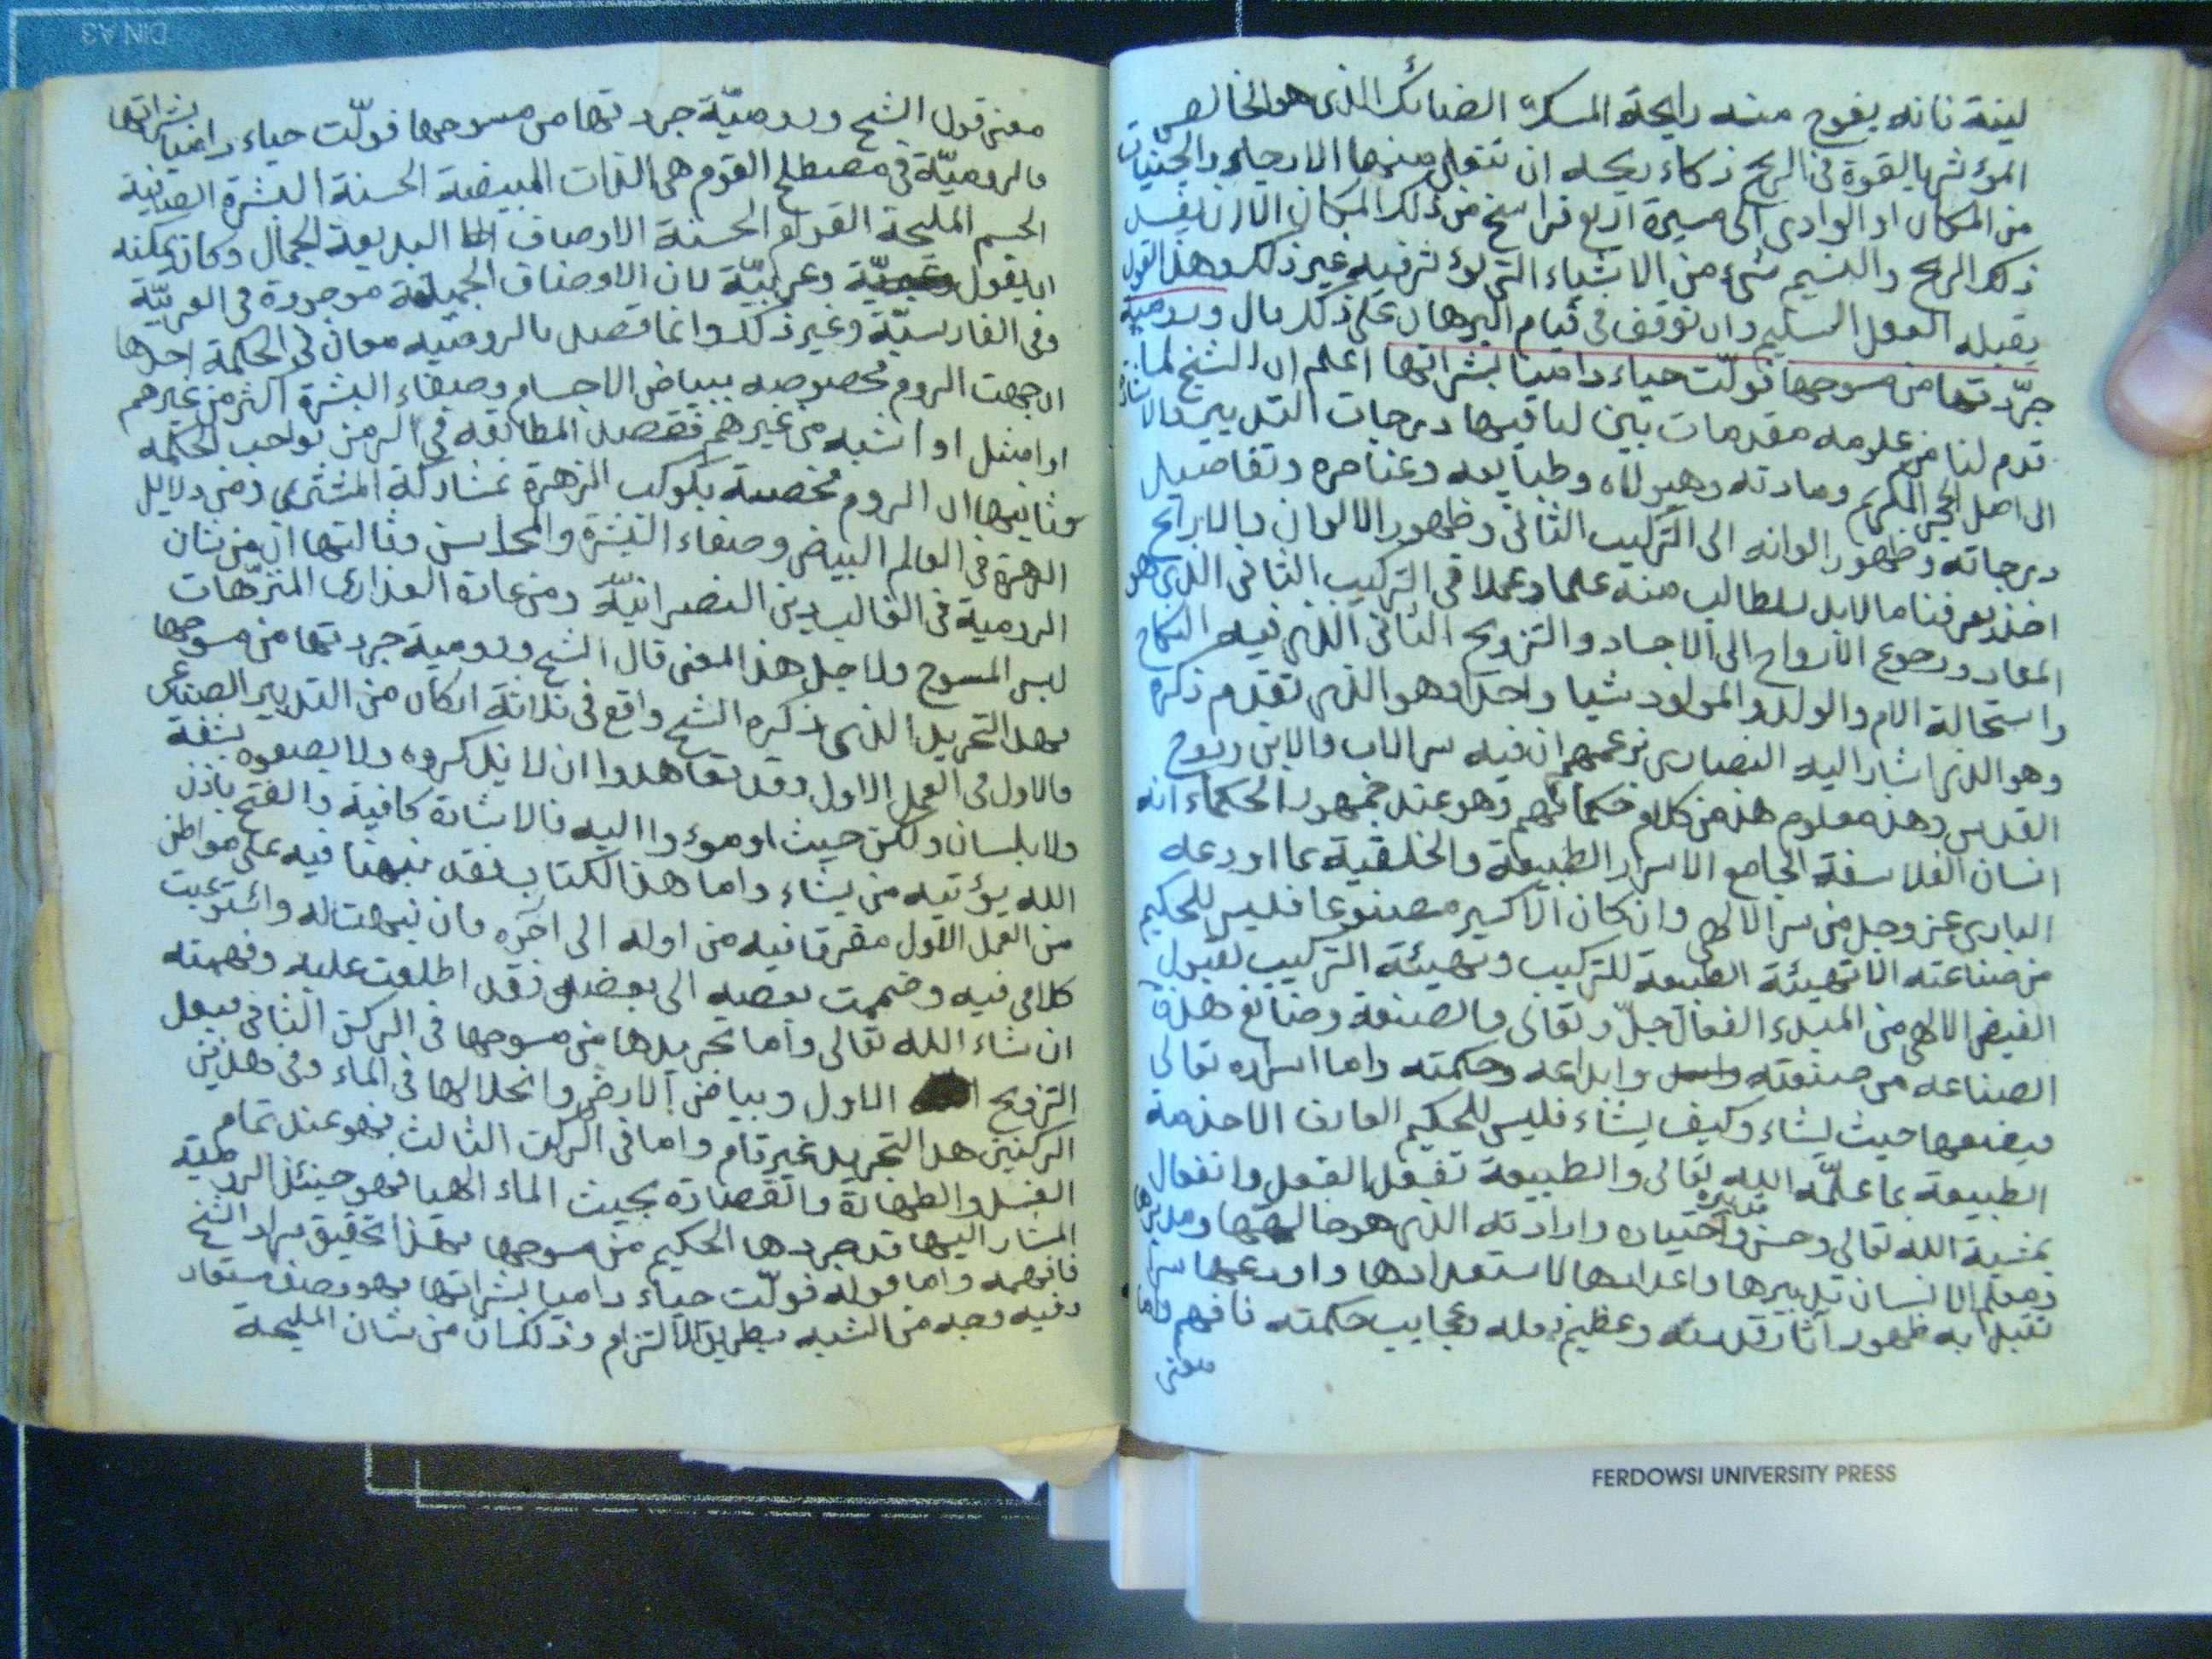 لينة فانه يفوح منه رايحة المسك الضايك الذى هو الخالص
المؤثر بالقوة فى الريح ذكاء ريحه ان تنقل منها الارجاء والجنبات
من المكان او الوادى الى مسيرة اربع فراسخ من ذلك المكان الا ان يفسد
ذلك الريح والنسيم شىء من الاشياء التى تؤثر فيه غير ذلك وهذا القول
يقبله العقل السليم وان توقف فى قيام البرهان على ذلك قال ورومية
جرّدتها من مسوحها فولّت حياء داميا بشراتها اعلم ان الشيخ لما
قدم لنا من علومه مقدمات بين لنا فيها درجات التدبير والاشارة
الى اصل الحجر المكرم ومادته وهيولاه وطبايعه وعناصره وتفاصيل
درجاته وظهور الوانه الى التركيب الثانى وظهور الالوان والارايح
اخذ يعرفنا مالابد للطالب منه علما وعملا فى التركيب الثانى الذى هو
المعاد ورجوع الارواح الى الاجساد والتزويج الثانى الذى فيه النكاح
واستحالة الام والولد والمولود شيا واحدا وهو الذى تقدم ذكره
وهو الذى اشار اليه النصارى بزعمهم ان فيه سر الاب والابن وروح
القدس وهذا معلوم هذا من كلام حكمائهم وهو عند جمهور الحكماء انه
انسان الفلاسفة الجامع الاسرار الطبيعة والخلقية بما اودعه
البارى عز وجل من سر الالهى وان كان الاكسير مصنوعا فليس للحكيم
من صناعته الا تهيئة الطبيعة للتركيب وتهيئة التركيب لقبول
الفيض الالهى من المبدء الفعال جلّ وتعالى فالصنعة وصنايع هذه
الصناعه من صنعته وابداعه وحكمته واما اسراره تعالى
فيضعها حيث يشاء وكيف يشاء فليس للحكيم العارف الا خدمة
الطبيعة بما علّمه الله تعالى والطبيعة تفعل الفعل وانفعال
بمشية الله تعالى وحسن تدبيره واختياره وارادته الذى هو خالقها ومدبرها
ومعلم الانسان تدبيرها واعدادها لاستعدادها واودعها سرا
تقبل به ظهور آثار قدرته وعظيم وعجايب حكمته فافهم واما
معنى
معنى قول الشيخ ورومّية جردتها من مسوحها فولّت حياء داميا بشراتها
فالروميّة فى مصطلح القوم هى الذات المبيضة الحسنة البشرة النقية
الجسم المليحة القوام الحسنة الاوصاف البديعة الجمال وكان يمكنه
ان يقول وعربيّة لان الاوصاف الجميلة موجودة فى العربيّة
وفى الفارسيّة وغير ذلك وانما قصد بالروميه معان فى الحكمة احدها
ان جهت الروم مخصوصه ببياض الاجسام وصفاء البشرة اكثر من غيرهم
او امثل او اشبه من غيرهم فقصد المطابقه فى الرمز لواجب الحكمه
وثانيها ان الروم مخصصة بكوكب الزهرة بمشاركة المشترى ومن دلايل
الزهرة فى العالم البيض وصفاء البشرة والمحاسن وثالثها ان من شان
الرومية فى الغالب دين النصرانيّة ومن عادة العذارى المتزهّات
لبس المسوح ولاجل هذا المعنى قال الشيخ ورومية جردتها من مسوحها
فهذا التجريد الذى ذكره الشيخ واقع فى ثلاثة اركان من التدبير الصناعى
فالاول فى العمل الاول وقد تعاهدوا ان لا يذكروه ولا يصفوه بشفة
ولا بلسان ولكن حيث اوموءوا اليه فالاشارة كافية والفتح باذن
الله يؤتيه من يشاء واما هذا الكتاب فقد نبهنا فيه على مواطن
من العمل الاول مفرقا فيه من اوله الى آخره فان نبهت له واستوعبت
كلامى فيه وضممت بعضه الى بعضه فقد اطلعت عليه وفهمته
ان شاء الله تعالى واما تجريدها من مسوحها فى الركن الثانى فبعد
التزويج الاول وبياض الارض وانحلالها فى الماء وفى هذين
الركنين هذا التجريد غير تام واما فى الركن الثالث فهو عند تمام
الغسل والطهارة والقصارة بحيث الماء الهبا فهو حينئذ الرومية
المشار اليها قد جردها الحكيم من مسوحها فهذا تحقيق مراد الشيخ
فافهمه واما قوله فولّت حياء داميا بشراتها فهو وصف مستعار
وفيه وجه من الشبه بطريق الالتزام وذلك ان من شان المليحة
FERDOWSI UNIVERSITY PRESS
DIN A3